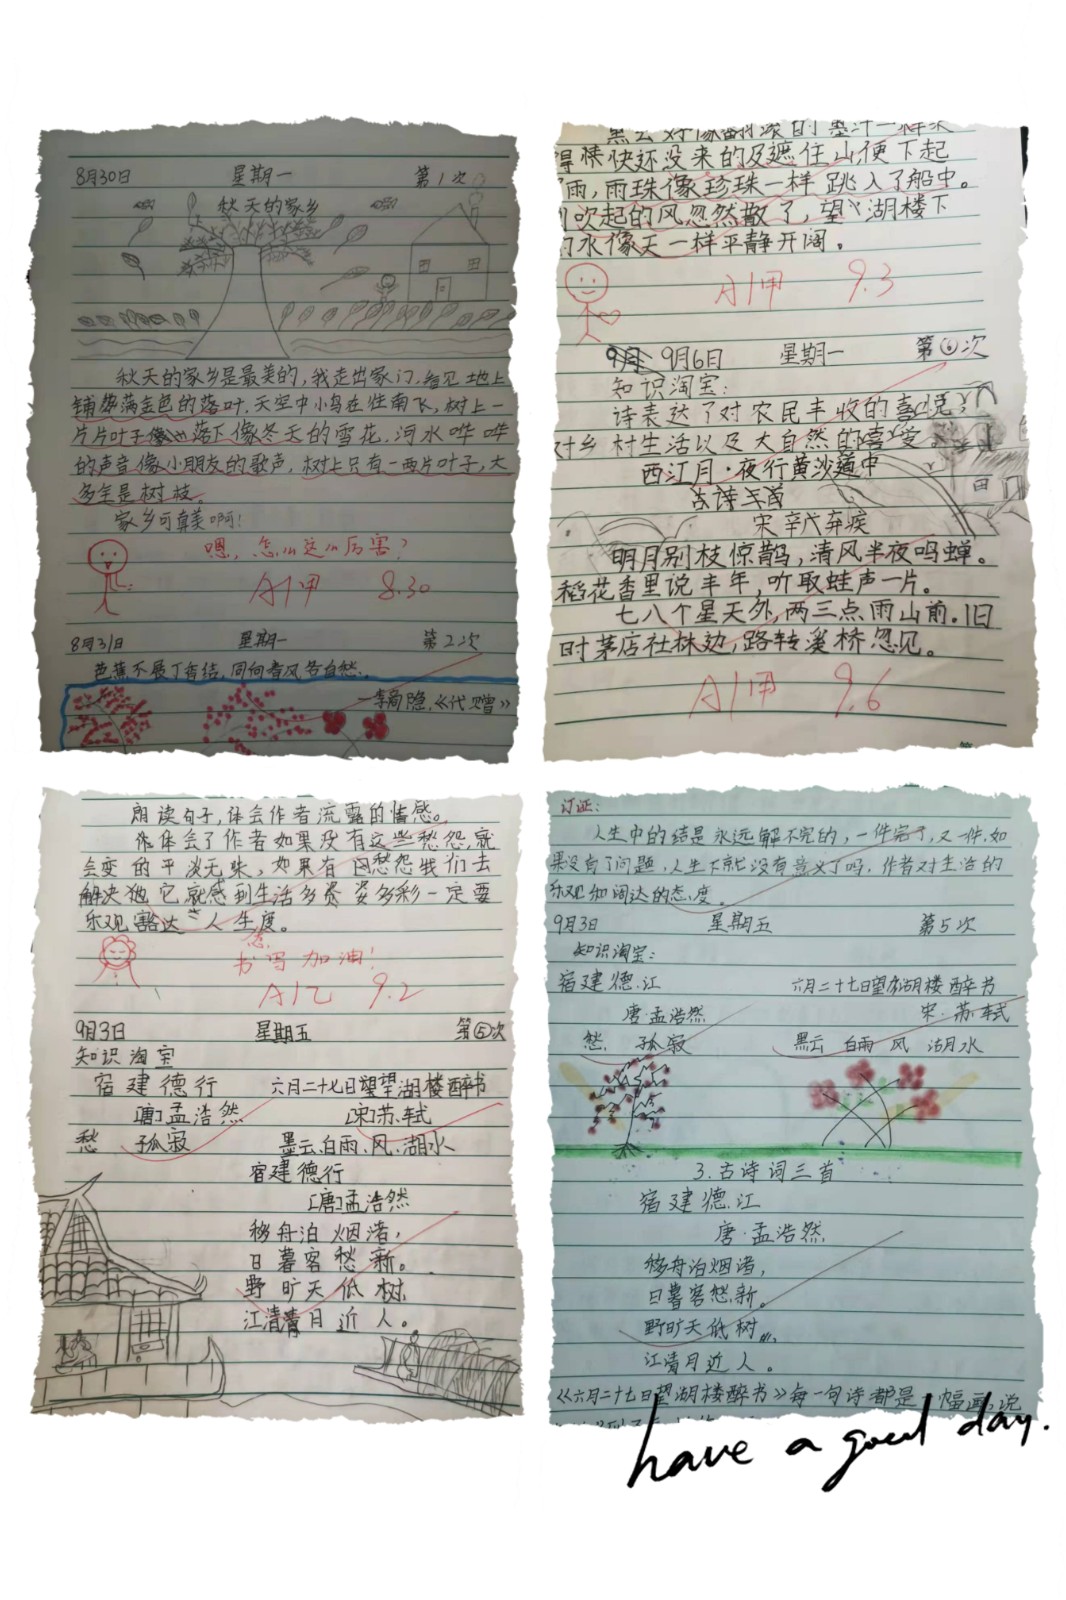 8月30日 星期一 第1次
秋天的家乡
秋天的家乡是最美的,我走出家门,看见地上
铺满金色的落叶.天空中小鸟在往南飞,树上一
片片叶子落下像冬天的雪花.河水哗哗
的声音像小朋友的歌声,树上只有一两片叶子,大
多全是树枝。
家乡可真美啊!
嗯,怎么这么厉害?
A1甲 8.30
8月31日 星期一 第2次
芭蕉不展丁香结,同向春风各自愁.
—李商隐.《代赠》
得快还没来的及遮住山便下起
雨,雨珠像珍珠一样跳入了船中。
吹起的风忽然散了,望湖楼下
水像天一样平静开阔。
A1甲 9.3
9月 9月6日 星期一 第⑥次
知识淘宝:
诗表达了对农民丰收的喜悦,
对乡村生活以及大自然的喜爱。
西江月·夜行黄沙道中
古诗三首
宋 辛弃疾
明月别枝惊鹊,清风半夜鸣蝉。
稻花香里说丰年,听取蛙声一片。
七八个星天外,两三点雨山前.旧
时茅店社林边,路转溪桥忽见。
A1甲 9.6
朗读句子,体会作者流露的情感。
体会了作者如果没有这些愁怨,就
会变的平淡无味,如果有愁怨我们去
解决它就感到生活多姿多彩一定要
乐观豁达 人生度。
态
书写加油!
A1乙 9.2
9月3日 星期五 第⑤次
知识淘宝
宿建德行 六月二十七日望望湖楼醉书
[唐]孟浩然 [宋]苏轼
愁 孤寂 墨云、白雨、风、湖水
宿建德行
[唐]孟浩然
移舟泊烟渚,
日暮客愁新。
野旷天低树,
江清月近人。
订证:
人生中的结是永远解不完的,一件完了,又一件.如
果没有了问题,人生不就没有意义了吗.作者对生活的
乐观和阔达的态度。
9月3日 星期五 第5次
知识淘宝:
宿建德.江 六月二十七日望湖楼醉书
唐·孟浩然 宋·苏轼
愁 孤寂 黑云 白雨 风 湖水
3.古诗词三首
宿建德.江
唐·孟浩然
移舟泊烟渚,
日暮客愁新。
野旷天低树,
江清月近人。
《六月二十七日望湖楼醉书》每一句诗都是 幅画,说
have a good day.